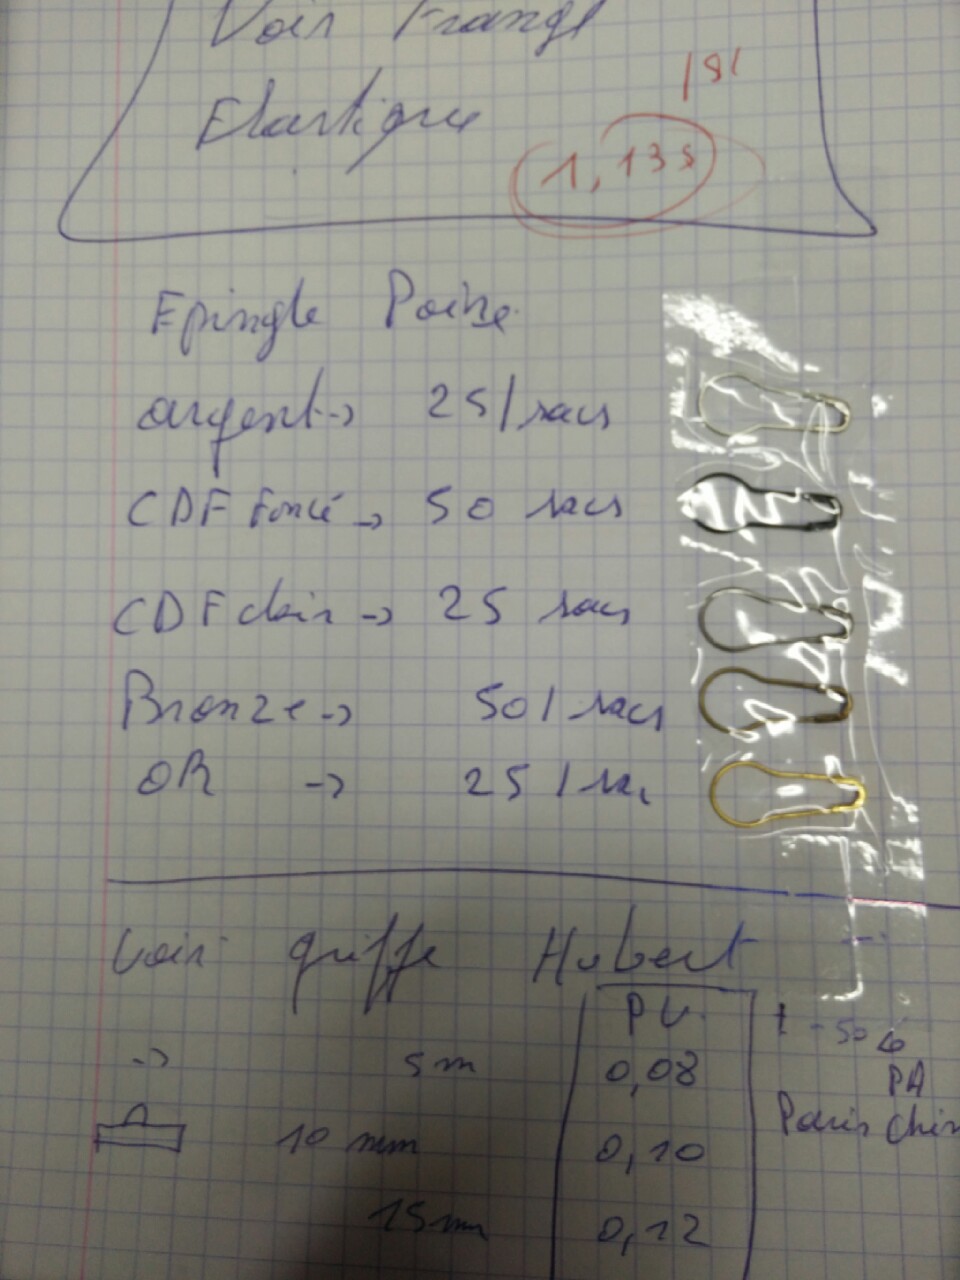 Voir Frange
Elastique
1,135
Epingle Poire
argent -> 25/sacs
CDF Foncé -> 50 sacs
CDF clair -> 25 sacs
Bronze -> 50/sacs
OR -> 25/sac
Voir griffe Hubert
PV.
-> 5m 0,08
PA
10 mm 0,10
Paris Chin
15mm 0,12